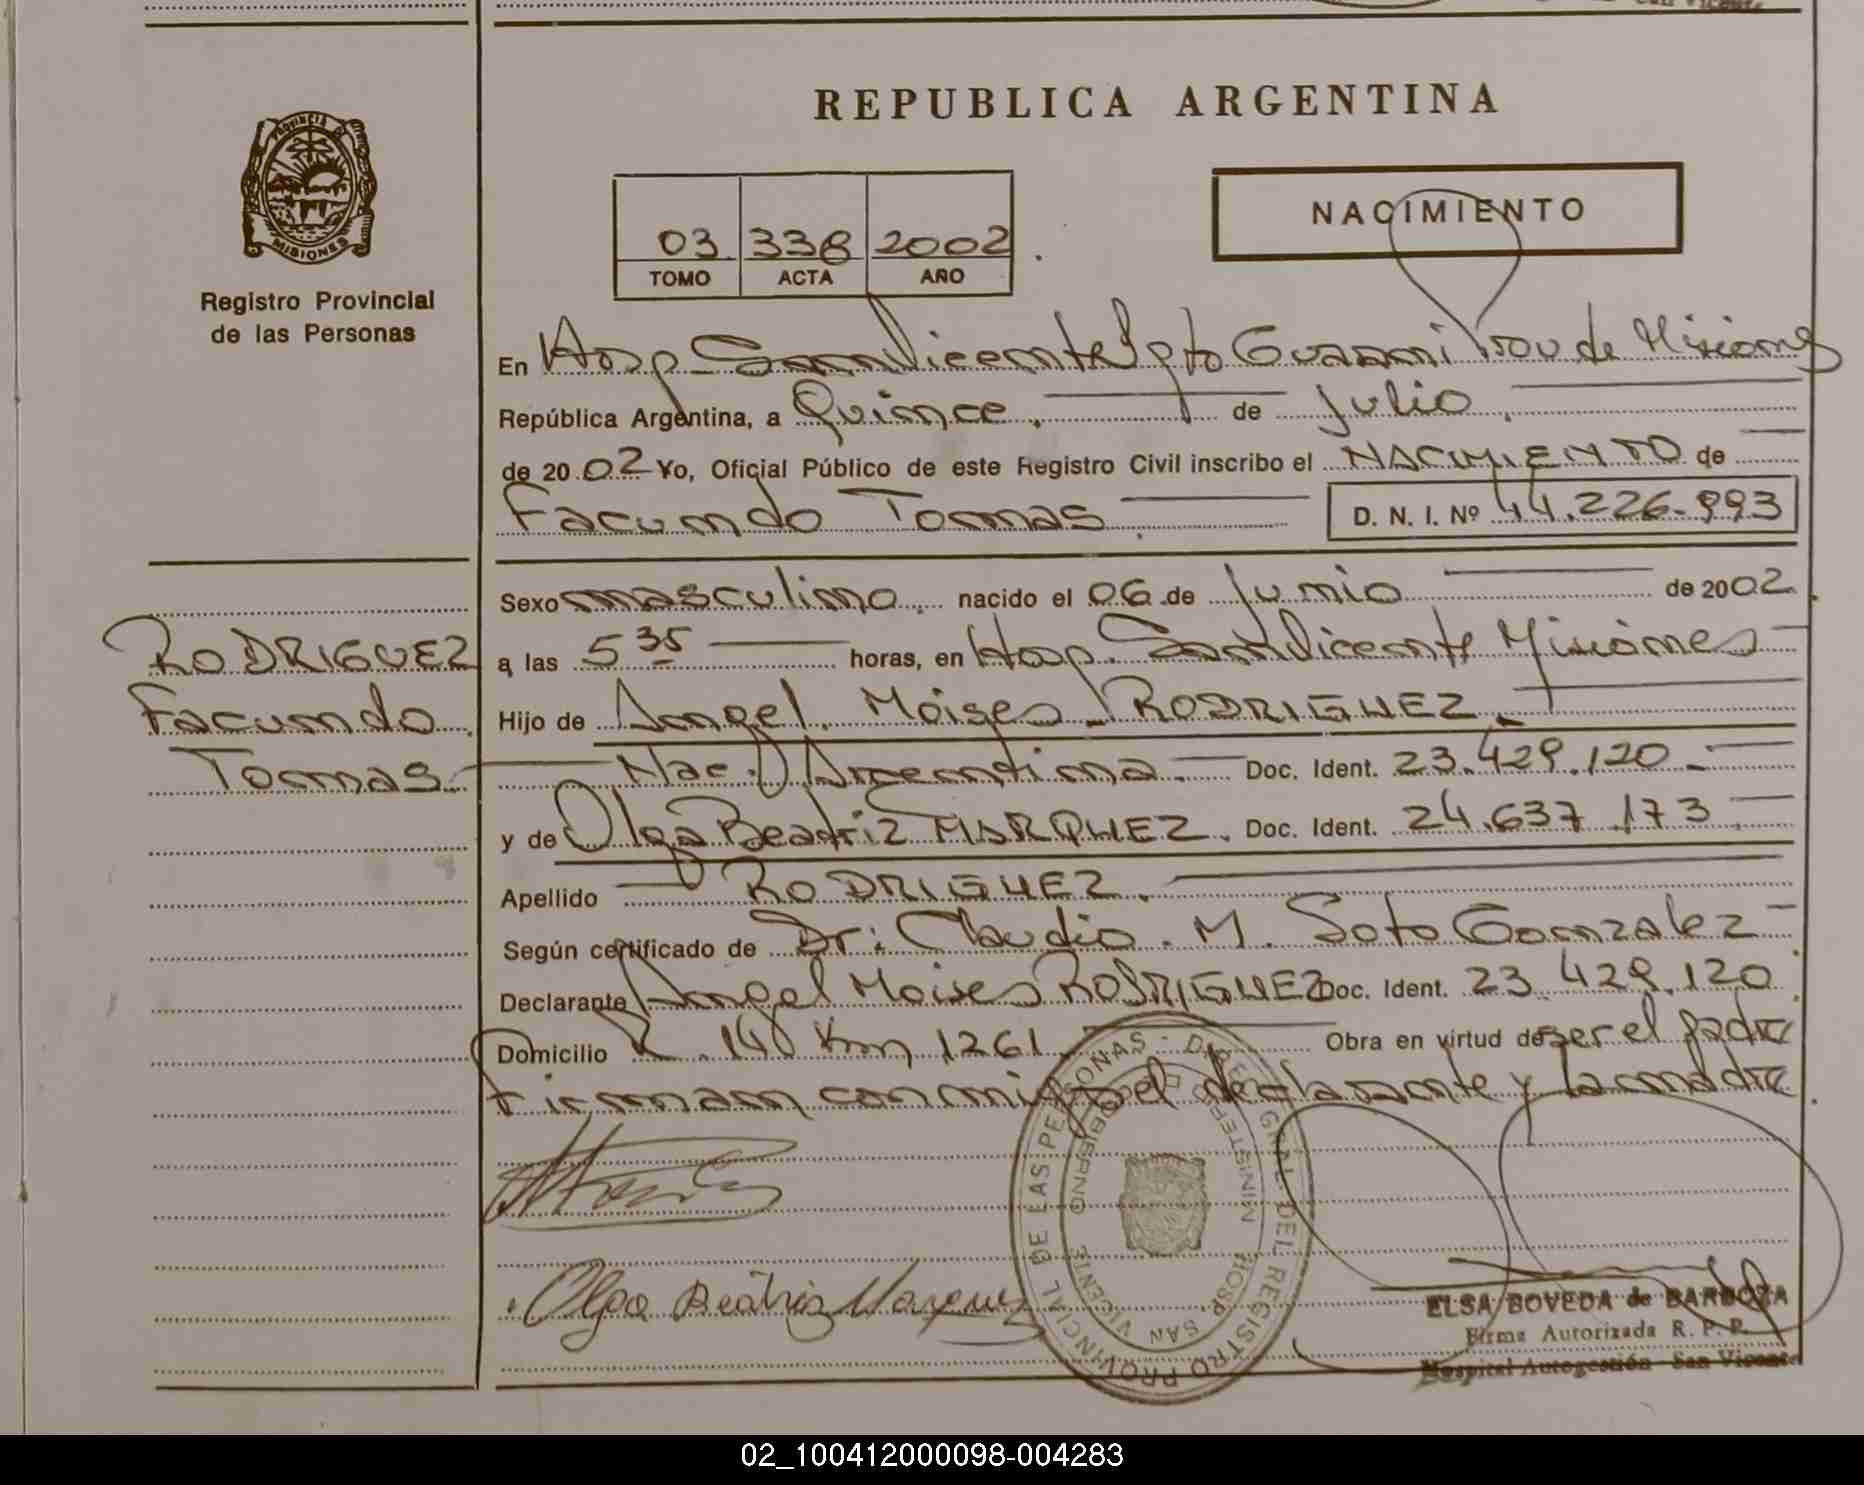 REPUBLICA ARGENTINA
PROVINCIA DE
MISIONES
Registro Provincial
de las Personas
03 338 2002
TOMO ACTA AÑO
NACIMIENTO
En Hosp San Vicente Dpto Guarani Prov de Misiones
República Argentina, a Quince de Julio
de 20 02 Yo, Oficial Público de este Registro Civil inscribo el NACIMIENTO de
Facundo Tomas D. N. I. Nº 44.226.993
Sexo masculino nacido el 06 de Junio de 2002
RODRIGUEZ
Facundo
Tomas
a las 5 35 horas, en Hosp. San Vicente Misiones
Hijo de Angel Moises RODRIGUEZ
Nac. Argentina Doc. Ident. 23.429.120
y de Olga Beatriz MARQUEZ. Doc. Ident. 24.637.173
Apellido RODRIGUEZ.
Según certificado de Dr. Claudio M. Soto Gonzalez
Declarante Angel Moises RODRIGUEZ Doc. Ident. 23.429.120
Domicilio R. 14 Km 1261 Obra en virtud de ser el padre
Firman conmigo el declarante y la madre
Olga Beatriz Marquez
REGISTRO PROVINCIAL DE LAS PERSONAS - DIR. GRAL. DEL
MINISTERIO DE GOBIERNO
HOSP SAN VICENTE
ELSA BOVEDA de BARBOZA
Firma Autorizada R. P. P.
Hospital Autogestión San Vicente
02_100412000098-004283